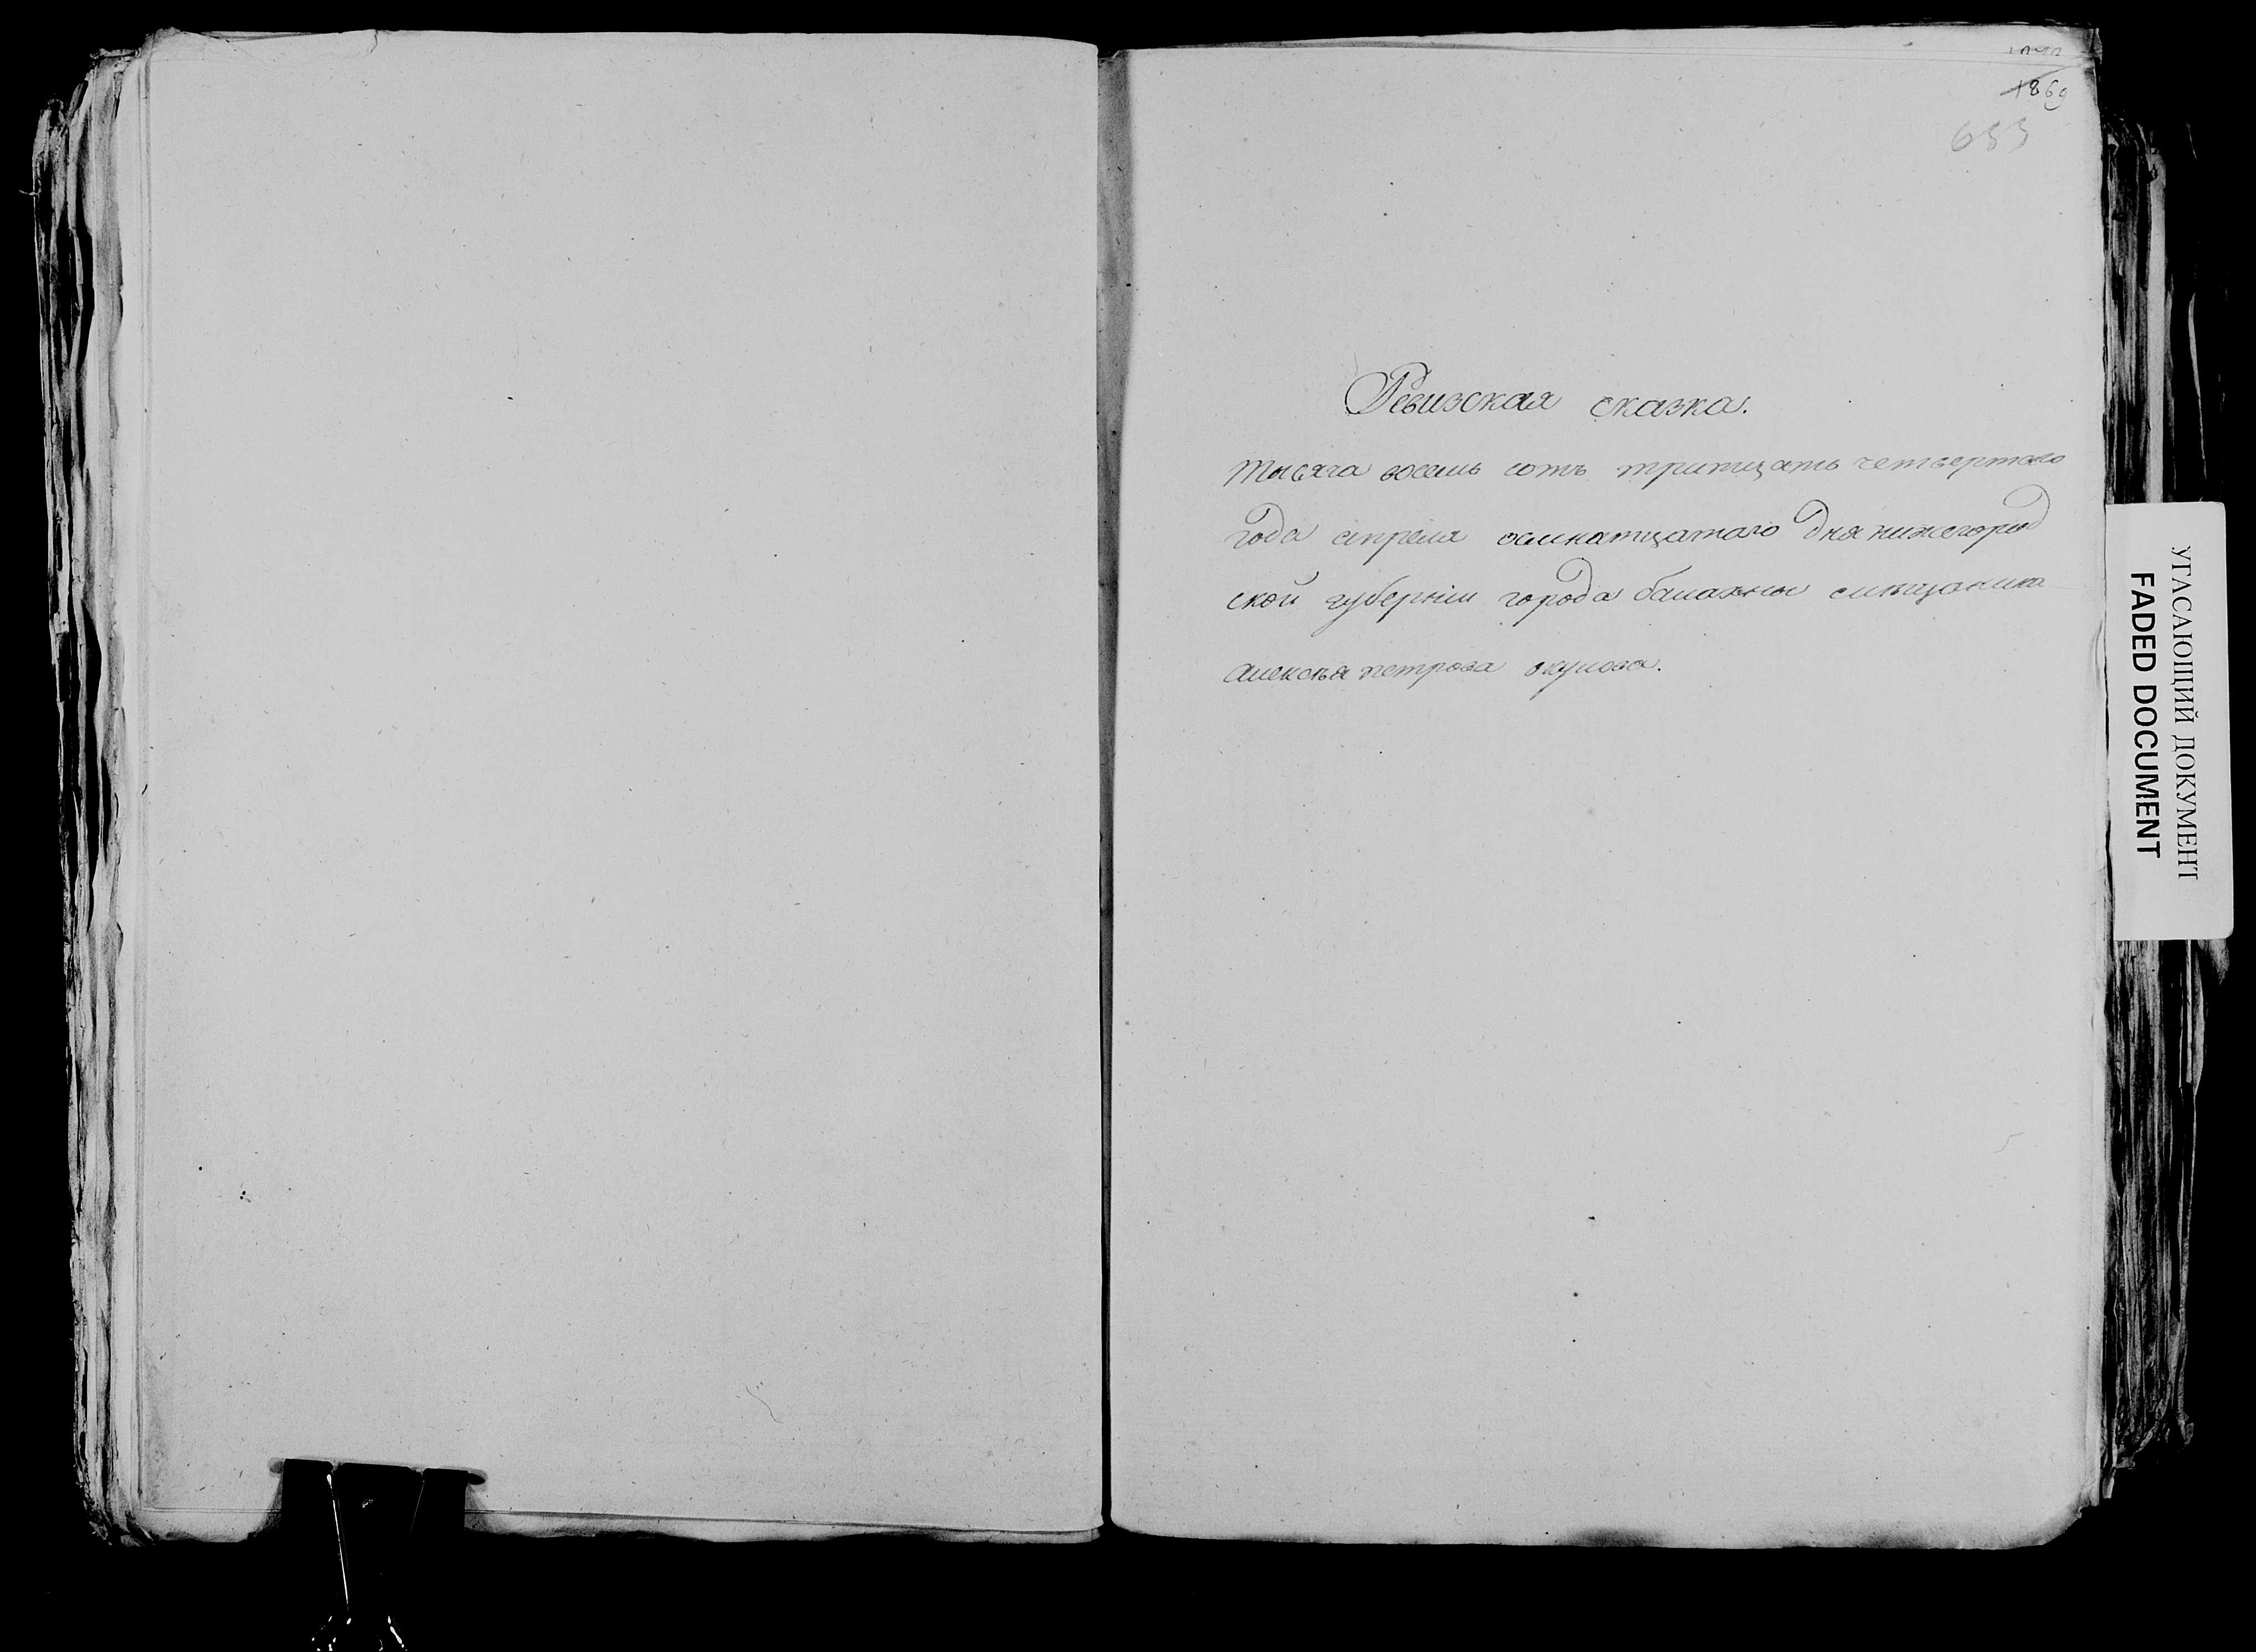 1869
633
Ревизская сказка.
тысяча восемь сотъ тритцать четвертаго
года апреля осмнатцатаго дня нижегород
ской губернии города балахны мещанина
алексея петрова окулова.
УГАСАЮЩИЙ ДОКУМЕНТ
FADED DOCUMENT